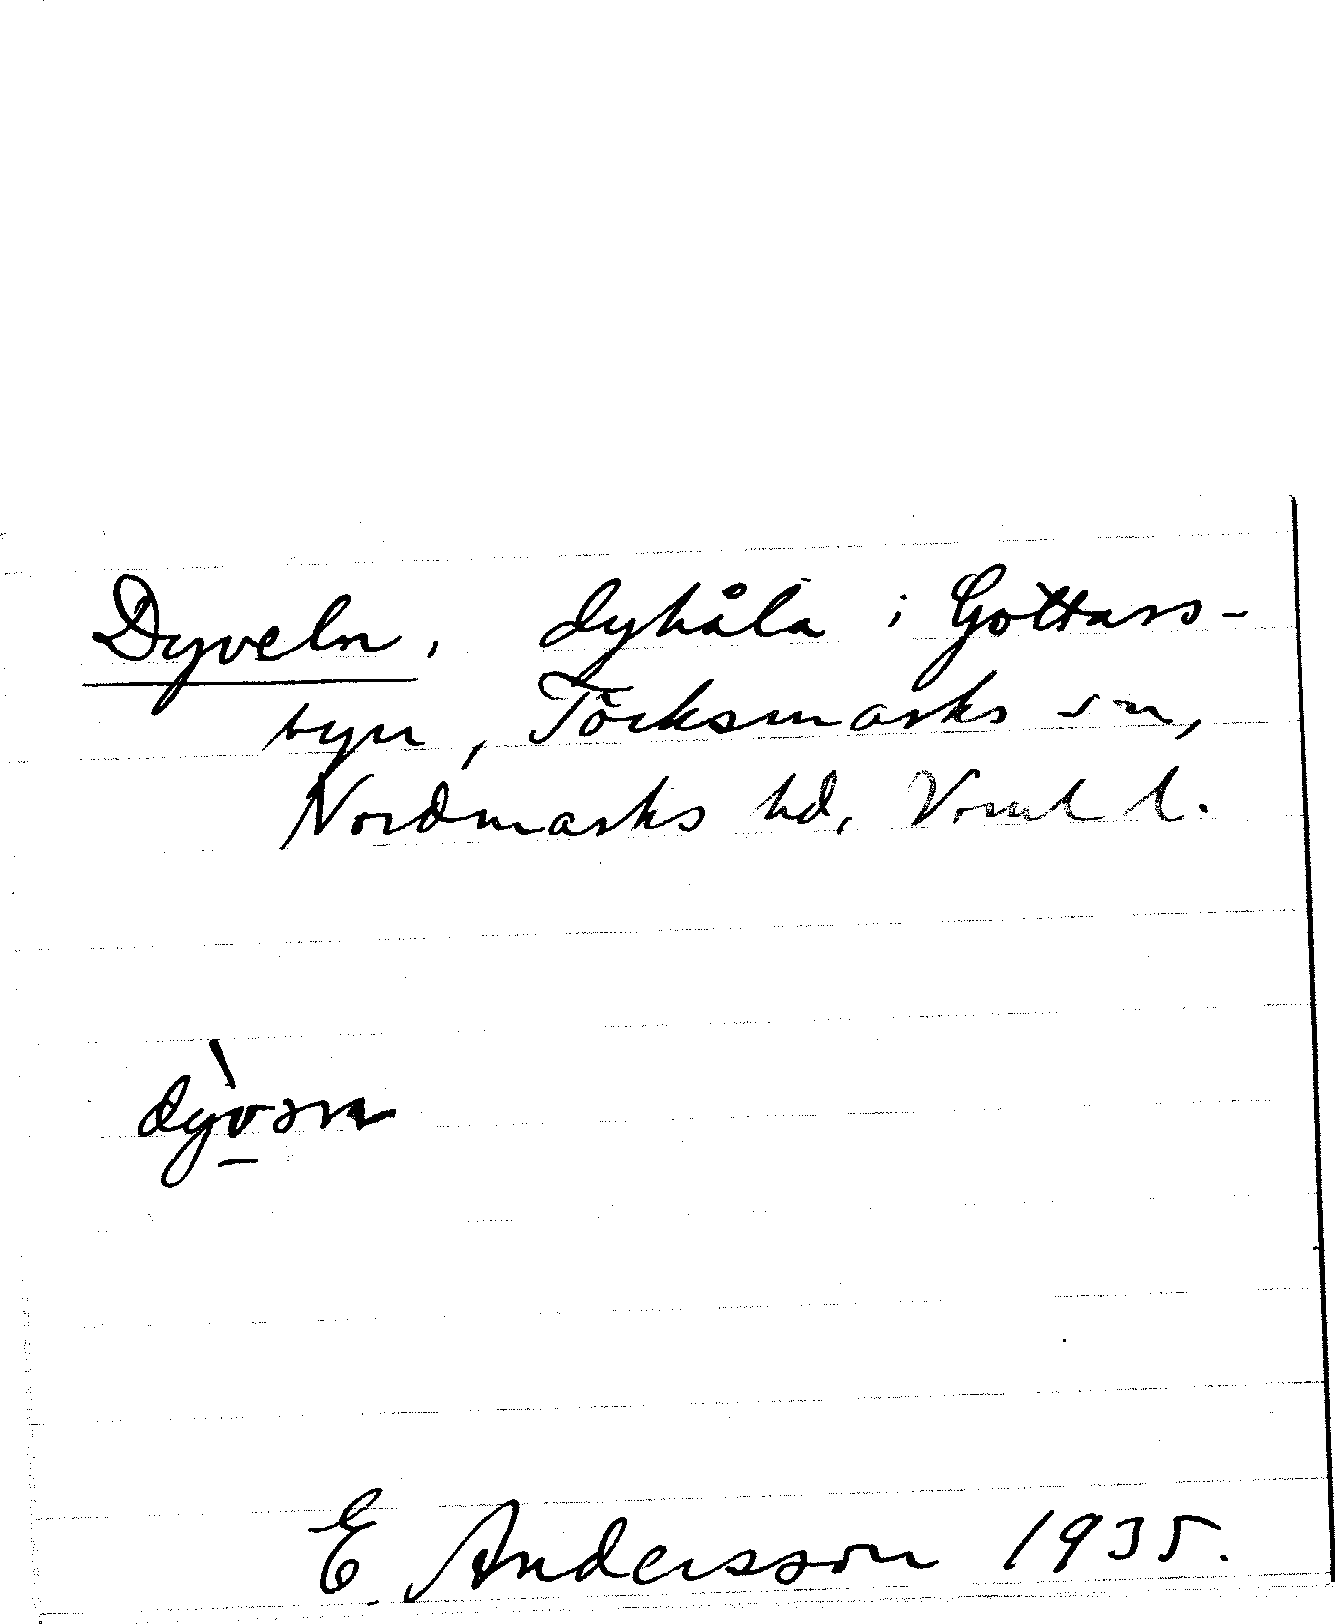 Dyveln, dyhåla i Gottars-
byn, Töcksmarks sn,
Nordmarks hd, Verml l.
E Andersson 1935.